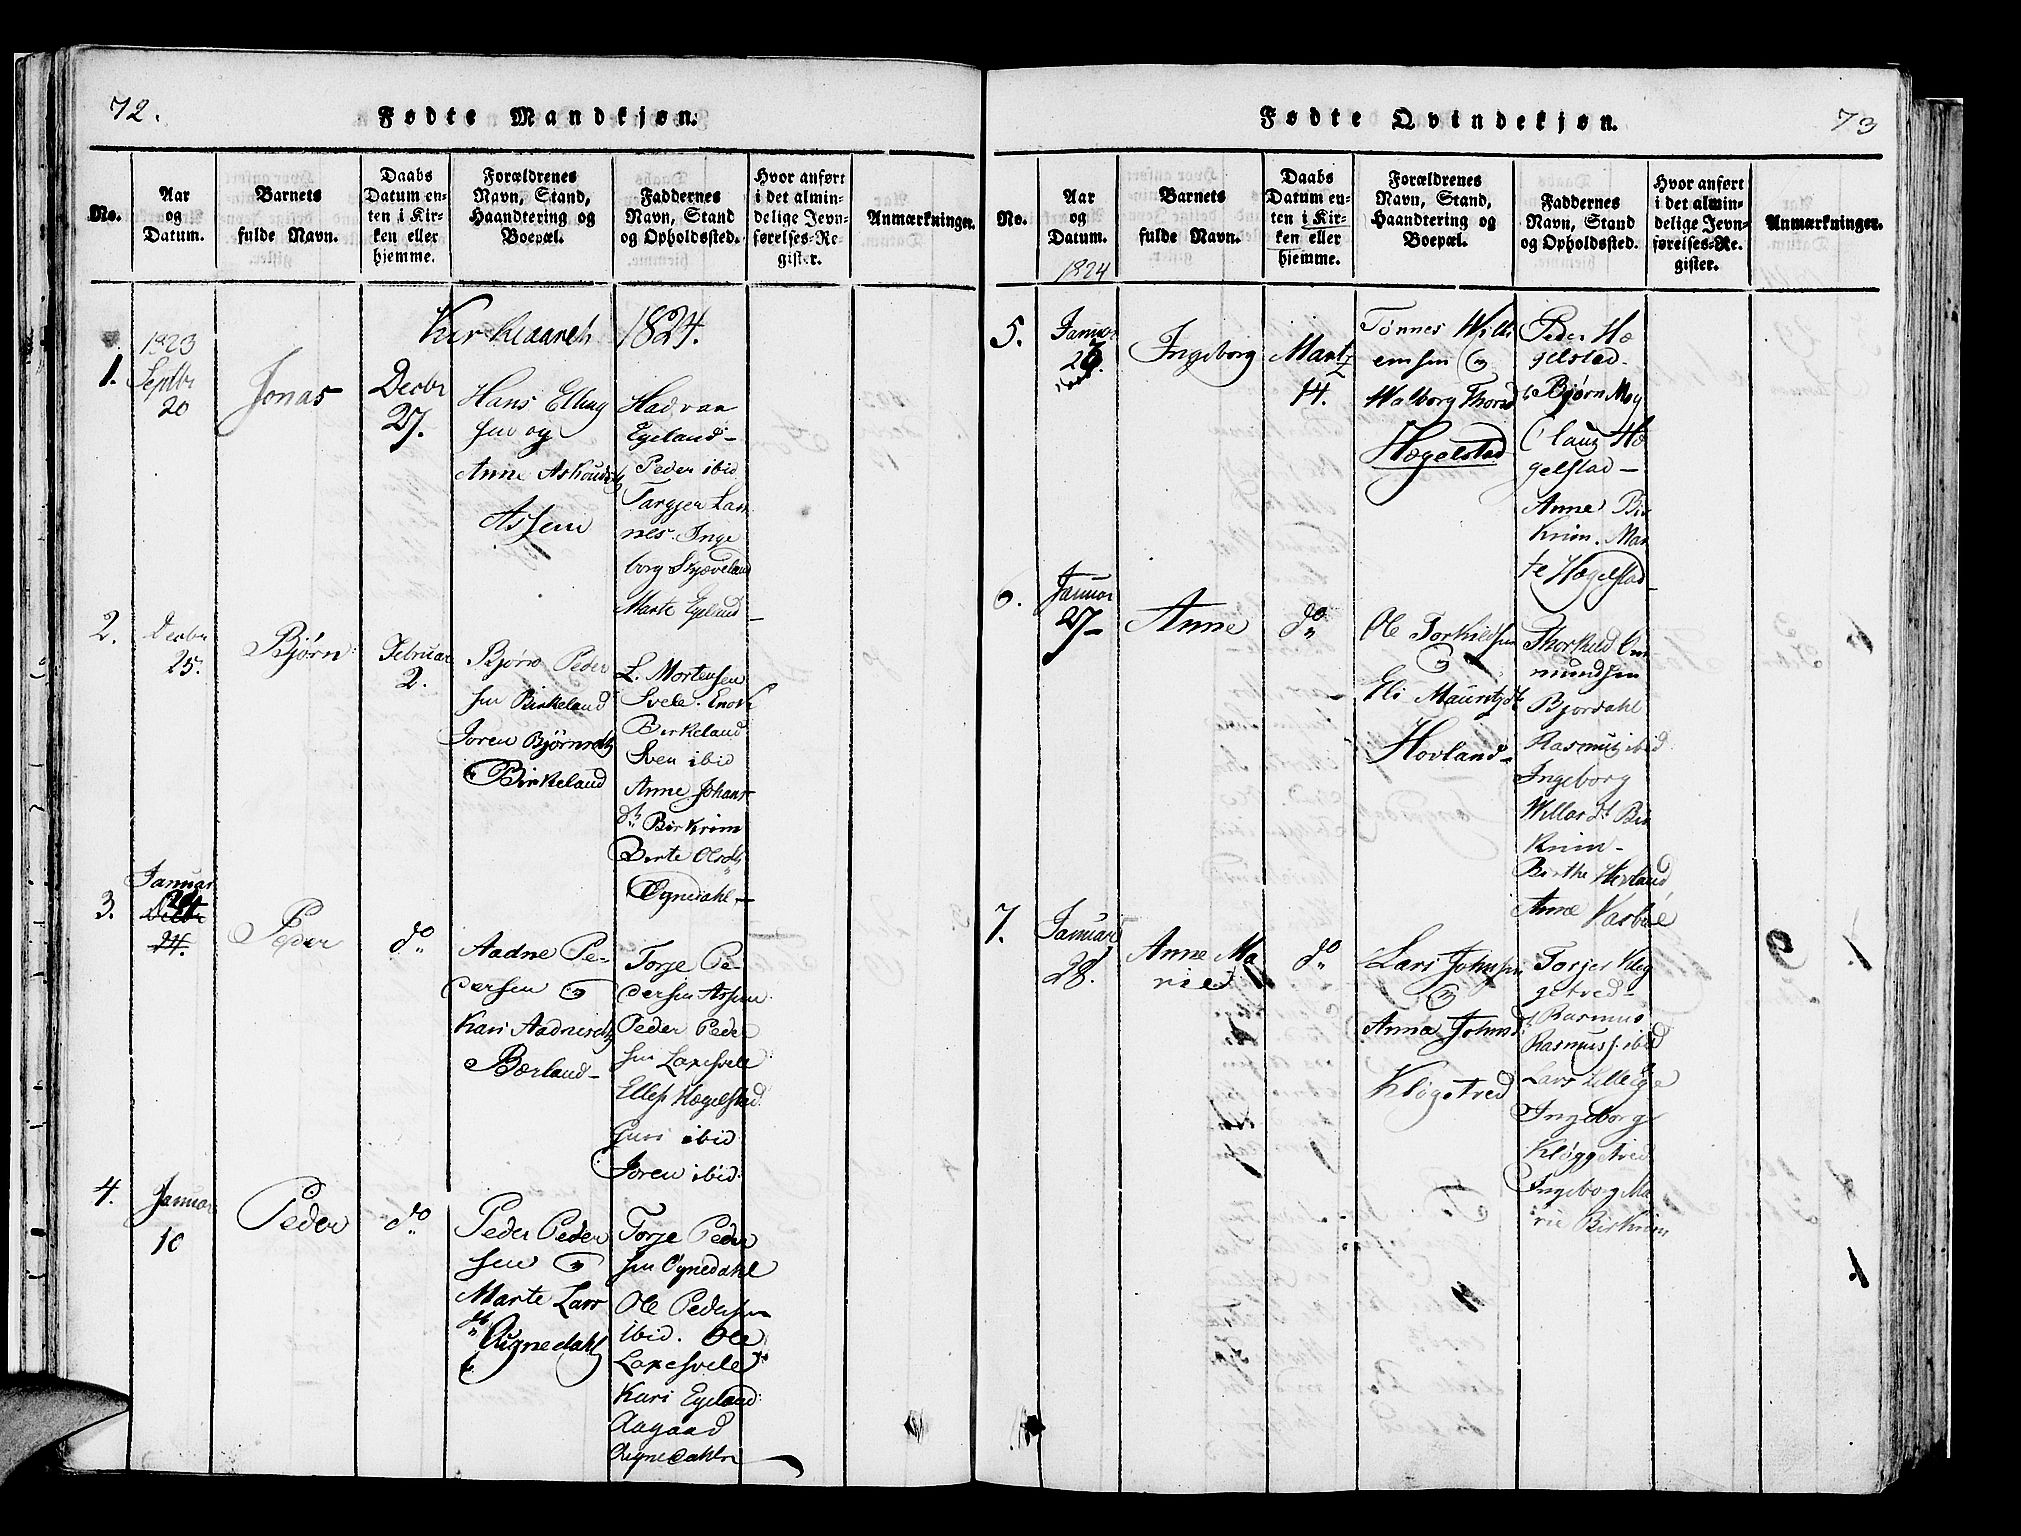 72.
Fødte Mandkjøn.
No.
Aar
og
Datum.
Barnets
fulde Navn.
Daabs
Datum en-
ten i Kir-
ken eller
hjemme.
Forældrenes
Navn, Stand,
Haandtering og
Boepæl.
Faddernes
Navn, Stand
og Opholdssted.
Hvor anført
i det almin-
delige Jevn-
førelses-Re-
gister.
Anmærkninger.
Kirkeaaret 1824.
1.
1823
Septbr
20
Jonas
Decbr
27.
Hans Elling
sen og
Anne
Assem
Had van
Egeland-
Peder ibid
Targjer Lan
nes. Inge
borg Skjæveland
Marte Egeland-
2.
Decbr
25.
Bjørn
Februar
2.
Bjørn Peder
sen Birkeland
Joren Bjørnsdtr
Birkeland
L. Mortensen
Svele. Enok
Birkeland
Sven ibid
Anne Johans
dtr Birkrim
Berte Olsdtr
Øgnedahl-
3.
Januar
Decbr
24.
Peder
do
Aadne Pe-
dersen
Kari Aadnesdtr
Bærland-
Torje Pe-
dersen Assem
Peder Peder
sen Laxesvele
Ellef Hægelstad
Guri ibid
Joren ibid
4.
Januar
10
Peder
do
Peder Peder
sen
Marte Lars
dtr
Øignedahl
Torje Peder
sen Øgnedahl
Ole Pedersen
ibid. Ole
Laxesvele
Kari Egeland
Aagaard
Øignedahl
73
Fødte Qvindekjøn.
No.
Aar
og
Datum.
1824
Barnets
fulde Navn.
Daabs
Datum en-
ten i Kir-
ken eller
hjemme.
Forældrenes
Navn, Stand,
Haandtering og
Boepæl.
Faddernes
Navn, Stand
og Opholdssted.
Hvor anført
i det almin-
delige Jevn-
førelses-Re-
gister.
Anmærkninger.
5.
Januar
Ingeborg
Martz
14.
Tønnes Willi
emsen
Walborg Thorsd
Hægelstad
Peder Hæ
gelstad.
Bjørn
Clauz Hæ
gelstad-
Anne Bir
krim. Mar
te Hægelstad-
6.
Januar
27-
Anne
do
Ole Torkildsen
Eli Mauritzdtr
Hovland-
Thorkild Om
mundsen
Bjordahl
Rasmus ibid
Ingeborg
Willarsd. Bir
krim-
Birthe Hovland
Anne
7.
Januar
28.
Anne Ma
rie
do
Lars Johnsen
Anna Johnsd
Kløgetved
Torjer Kleg
getved-
Rasmus
Rasmuss. ibid
Lars
Ingeborg
Kløggetved
Ingeborg Ma
rie Birkrim